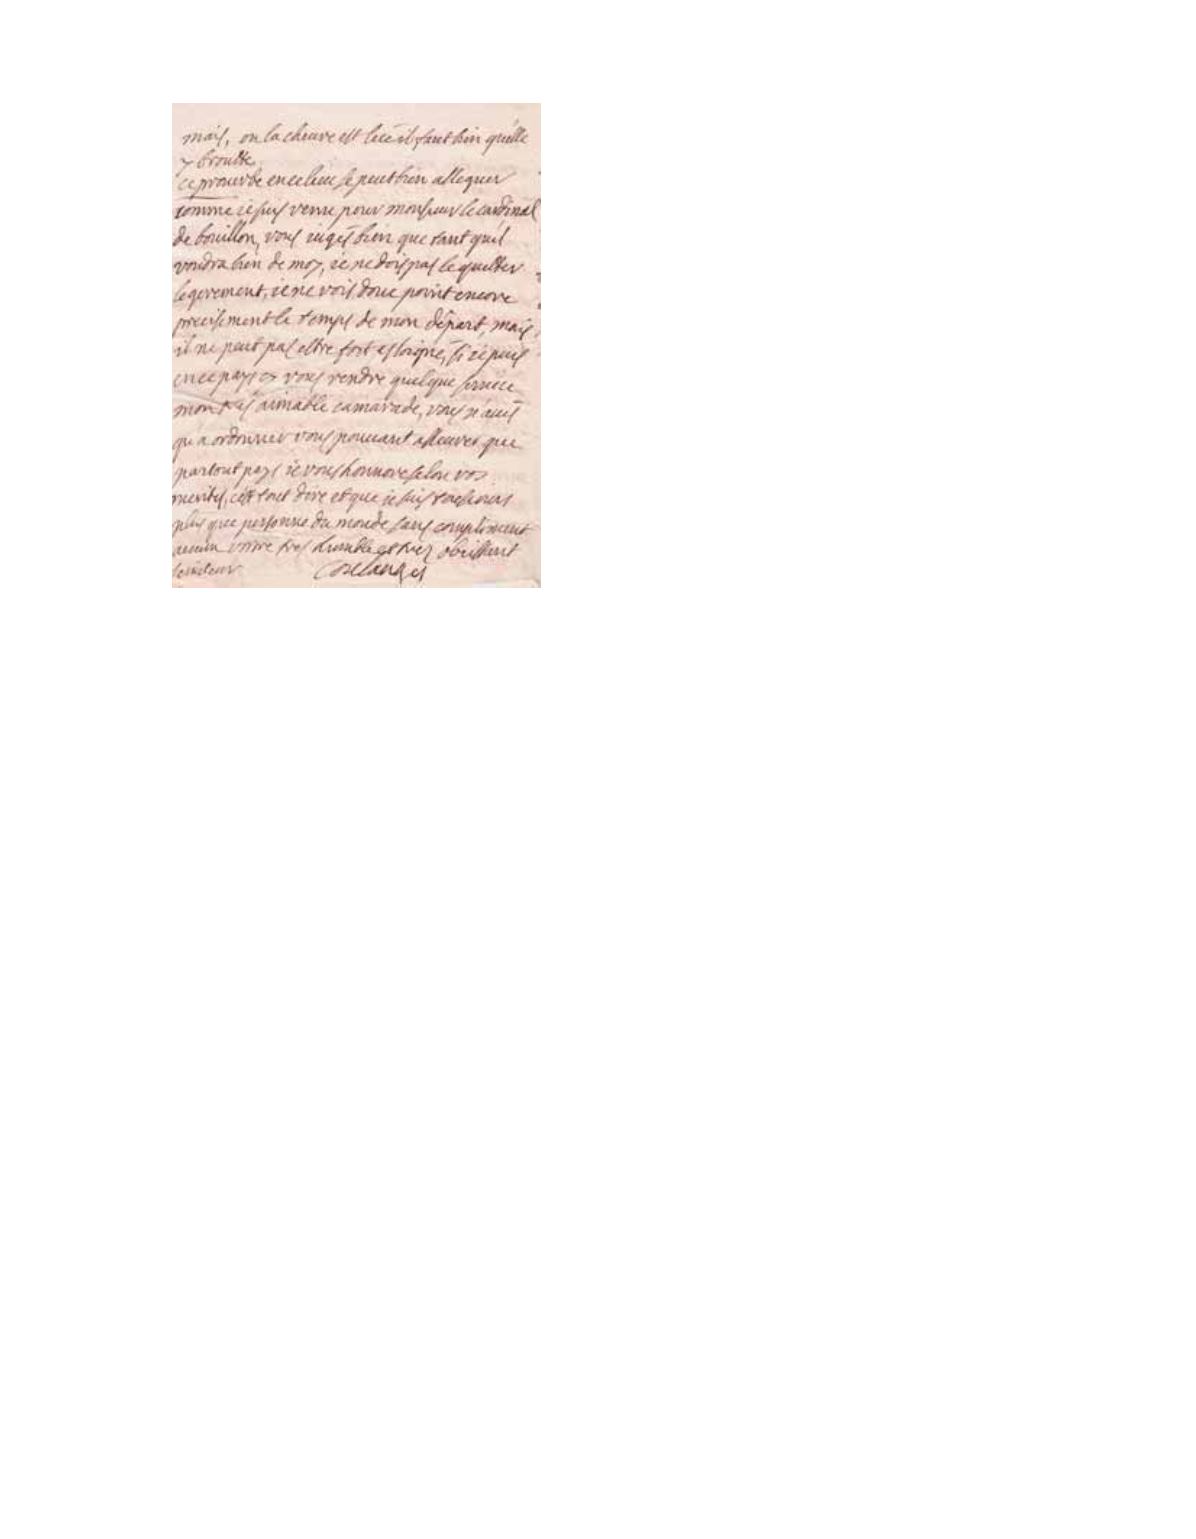 mais, ou la cheure est liée il faut bien qu'elle
y broutte
ce prouerbe en ce lieu se peut bien alleguer
comme ie suis venu pour monsieur le cardinal
de bouillon, vous iugés bien que tant qu'il
voudra bien de moy, ie ne dois pas le quitter
legerement, ie ne vois donc point encore
precisement le temps de mon départ, mais
il ne peut pas estre fort esloigné, si ie puis
en ce pays cy vous rendre quelque seruice
mon tres aimable camarade, vous n'aués
qu'a ordonner vous pouuant asseurer que
partout pays ie vous honnore selon vos
merites, c'est tout dire et que ie suis tousiours
plus que personne du monde sans compliment
aucun vostre tres humble et tres obeissant
seruiteur Coulanges